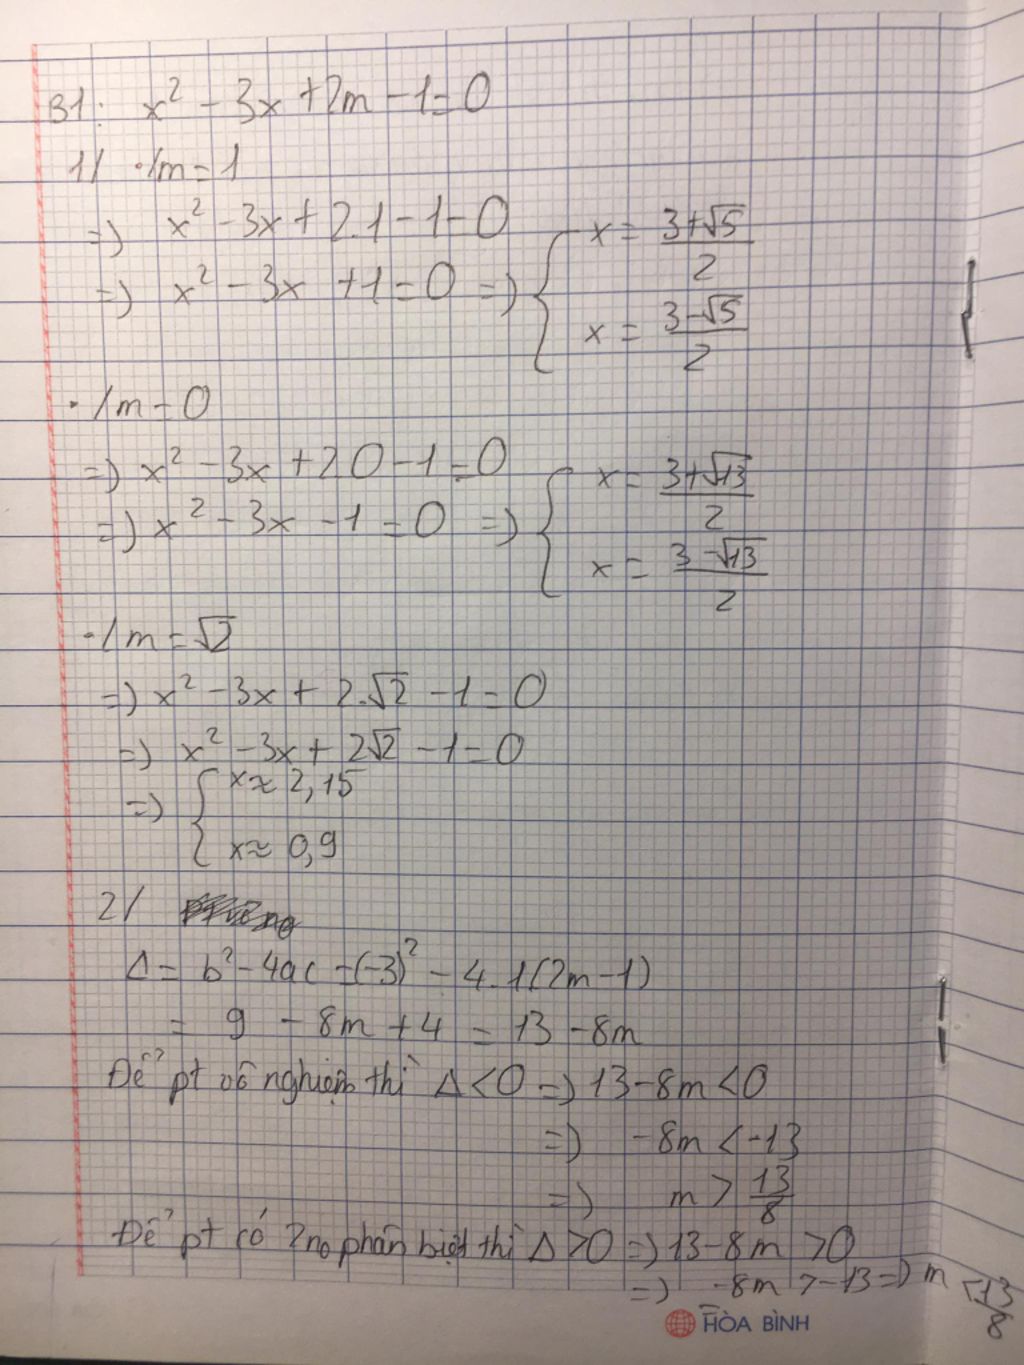 B1: x² - 3x + 2m - 1 = 0
1/ ·/ m = 1
=) x² - 3x + 2.1 - 1 = 0
=) x² - 3x + 1 = 0 =) { x = (3+√5)/2
x = (3-√5)/2
·/ m = 0
=) x² - 3x + 2.0 - 1 = 0
=) x² - 3x - 1 = 0 =) { x = (3+√13)/2
x = (3-√13)/2
·/ m = √2
=) x² - 3x + 2.√2 - 1 = 0
=) x² - 3x + 2√2 - 1 = 0
=) { x ≈ 2,15
x ≈ 0,9
2/
Δ = b² - 4ac = (-3)² - 4.1(2m - 1)
= 9 - 8m + 4 = 13 - 8m
Để pt vô nghiệm thì Δ < 0 =) 13 - 8m < 0
=) -8m < -13
=) m > 13/8
Để pt có 2 no phân biệt thì Δ > 0 =) 13 - 8m > 0
=) -8m > -13 =) m < 13/8
HÒA BÌNH